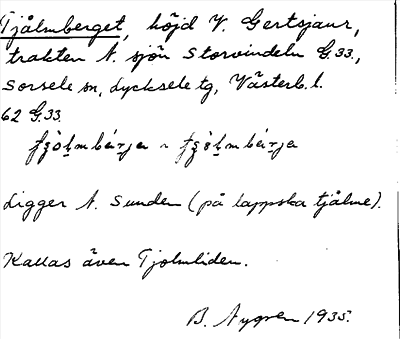 Tjålmberget, höjd V. Gertsjaur,
trakten N. sjön Storvindeln G.33.,
Sorsele sn, Lycksele tg, Västerb. l.
62 G.33.
Ligger N. Sunden (på lappska tjålme).
Kallas även Tjolmliden.
B. Nygren 1935.